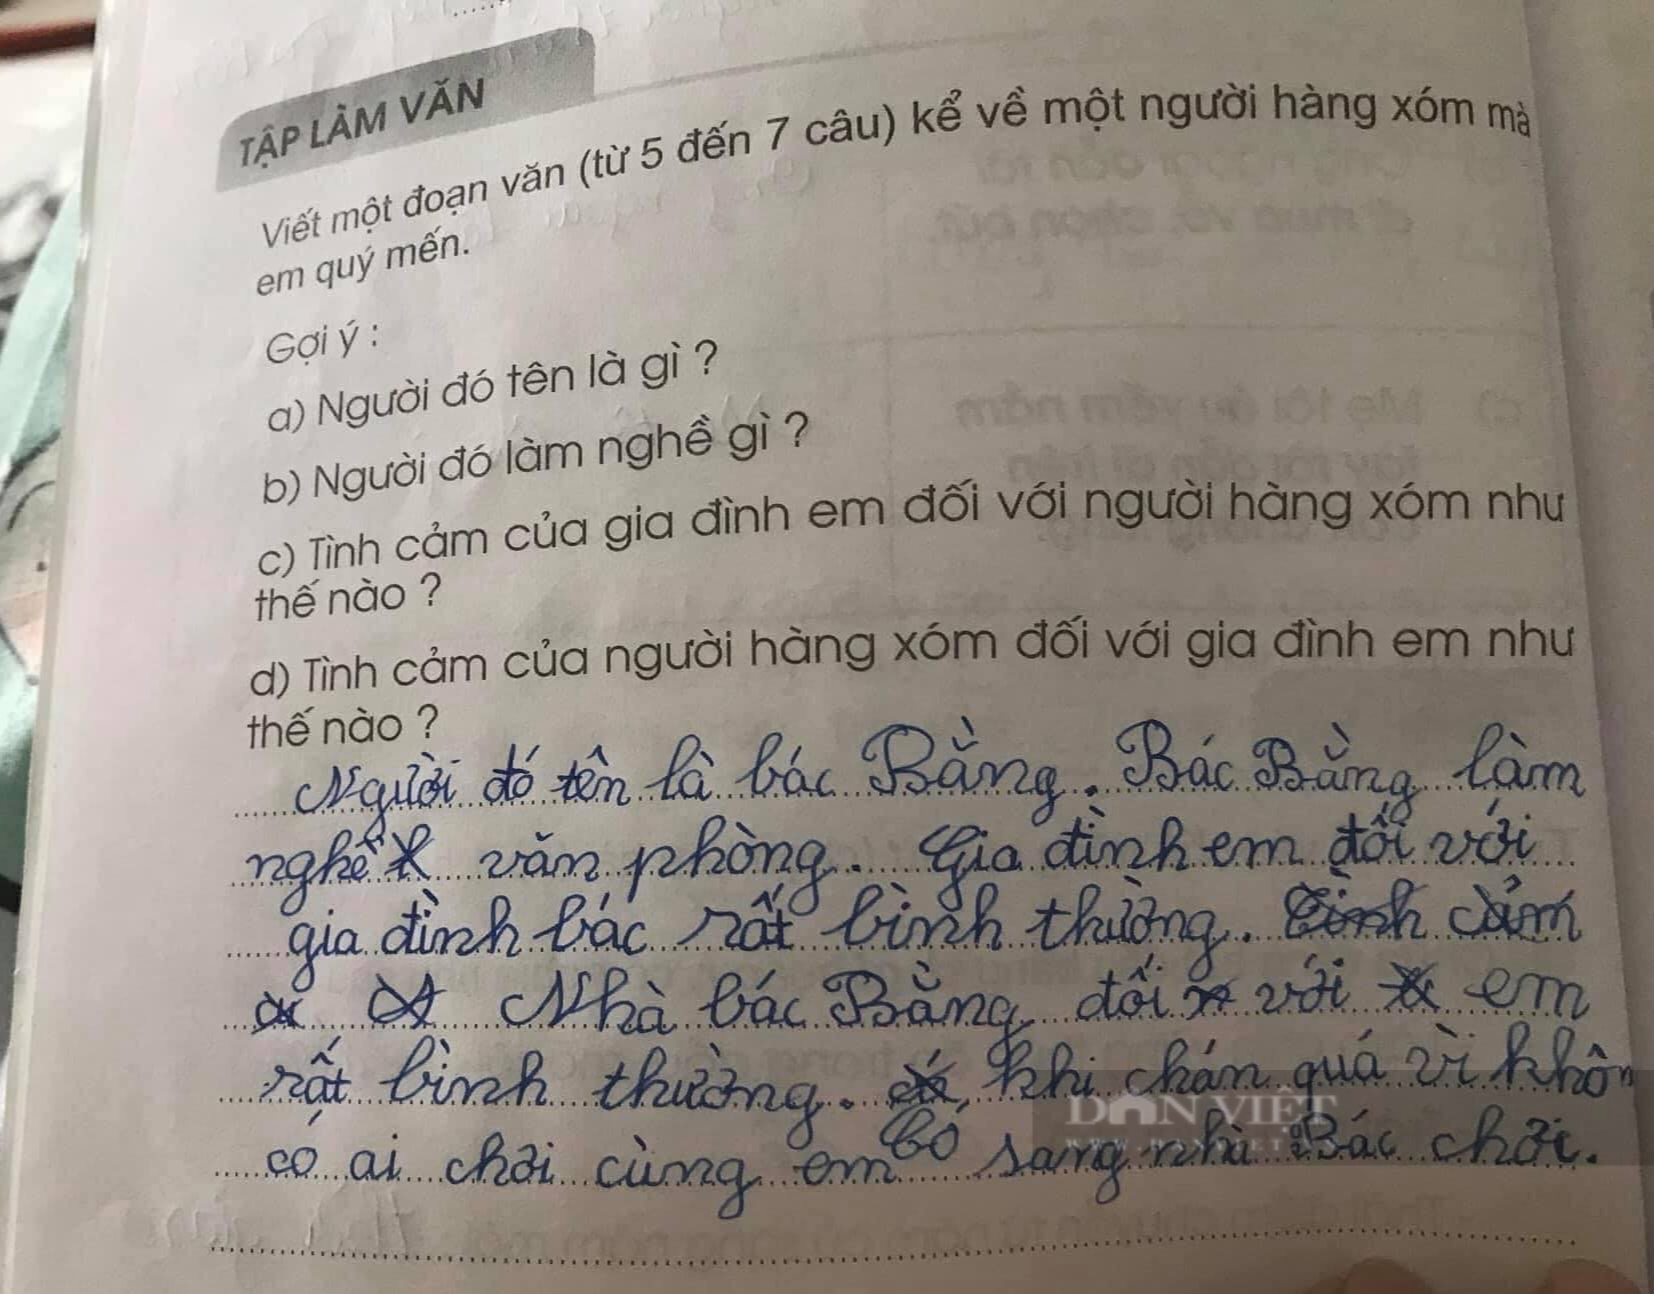 TẬP LÀM VĂN
Viết một đoạn văn (từ 5 đến 7 câu) kể về một người hàng xóm mà
em quý mến.
Gợi ý :
a) Người đó tên là gì ?
b) Người đó làm nghề gì ?
c) Tình cảm của gia đình em đối với người hàng xóm như
thế nào ?
d) Tình cảm của người hàng xóm đối với gia đình em như
thế nào ?
Người đó tên là bác Bằng. Bác Bằng làm
nghề văn phòng. Gia đình em đối với
gia đình bác rất bình thường. Tình cảm
Nhà bác Bằng đối với em
rất bình thường. khi chán quá vì khôn
có ai chơi cùng em có sang nhà Bác chơi.
DÂN VIỆT